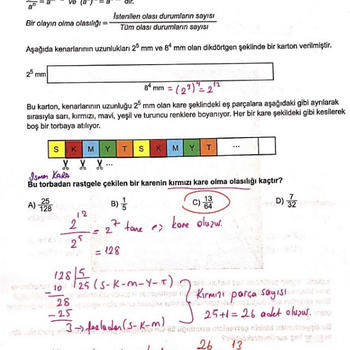 aⁿ = aⁿ ve (aⁿ)ᵐ = aⁿˣᵐ dir.
Bir olayın olma olasılığı = İstenilen olası durumların sayısı / Tüm olası durumların sayısı
Aşağıda kenarlarının uzunlukları 2⁵ mm ve 8⁴ mm olan dikdörtgen şeklinde bir karton verilmiştir.
2⁵ mm
8⁴ mm = (2³)⁴ = 2¹²
Bu karton, kenarlarının uzunluğu 2⁵ mm olan kare şeklindeki eş parçalara aşağıdaki gibi ayrılarak
sırasıyla sarı, kırmızı, mavi, yeşil ve turuncu renklere boyanıyor. Her bir kare şekildeki gibi kesilerek
boş bir torbaya atılıyor.
S K M Y T S K M Y T ...
...
İsmm Kara
Bu torbadan rastgele çekilen bir karenin kırmızı kare olma olasılığı kaçtır?
A) 25/128 B) 1/5 C) 13/64 D) 7/32
2¹²/2⁵ = 2⁷ tane => kare oluşur.
= 128
128 | 5
10 25 (S-K-M-Y-T)
28
- 25
3 → fazladan (S-K-M)
Kırmızı parça sayısı
25+1 = 26 adet oluşur.
26 13